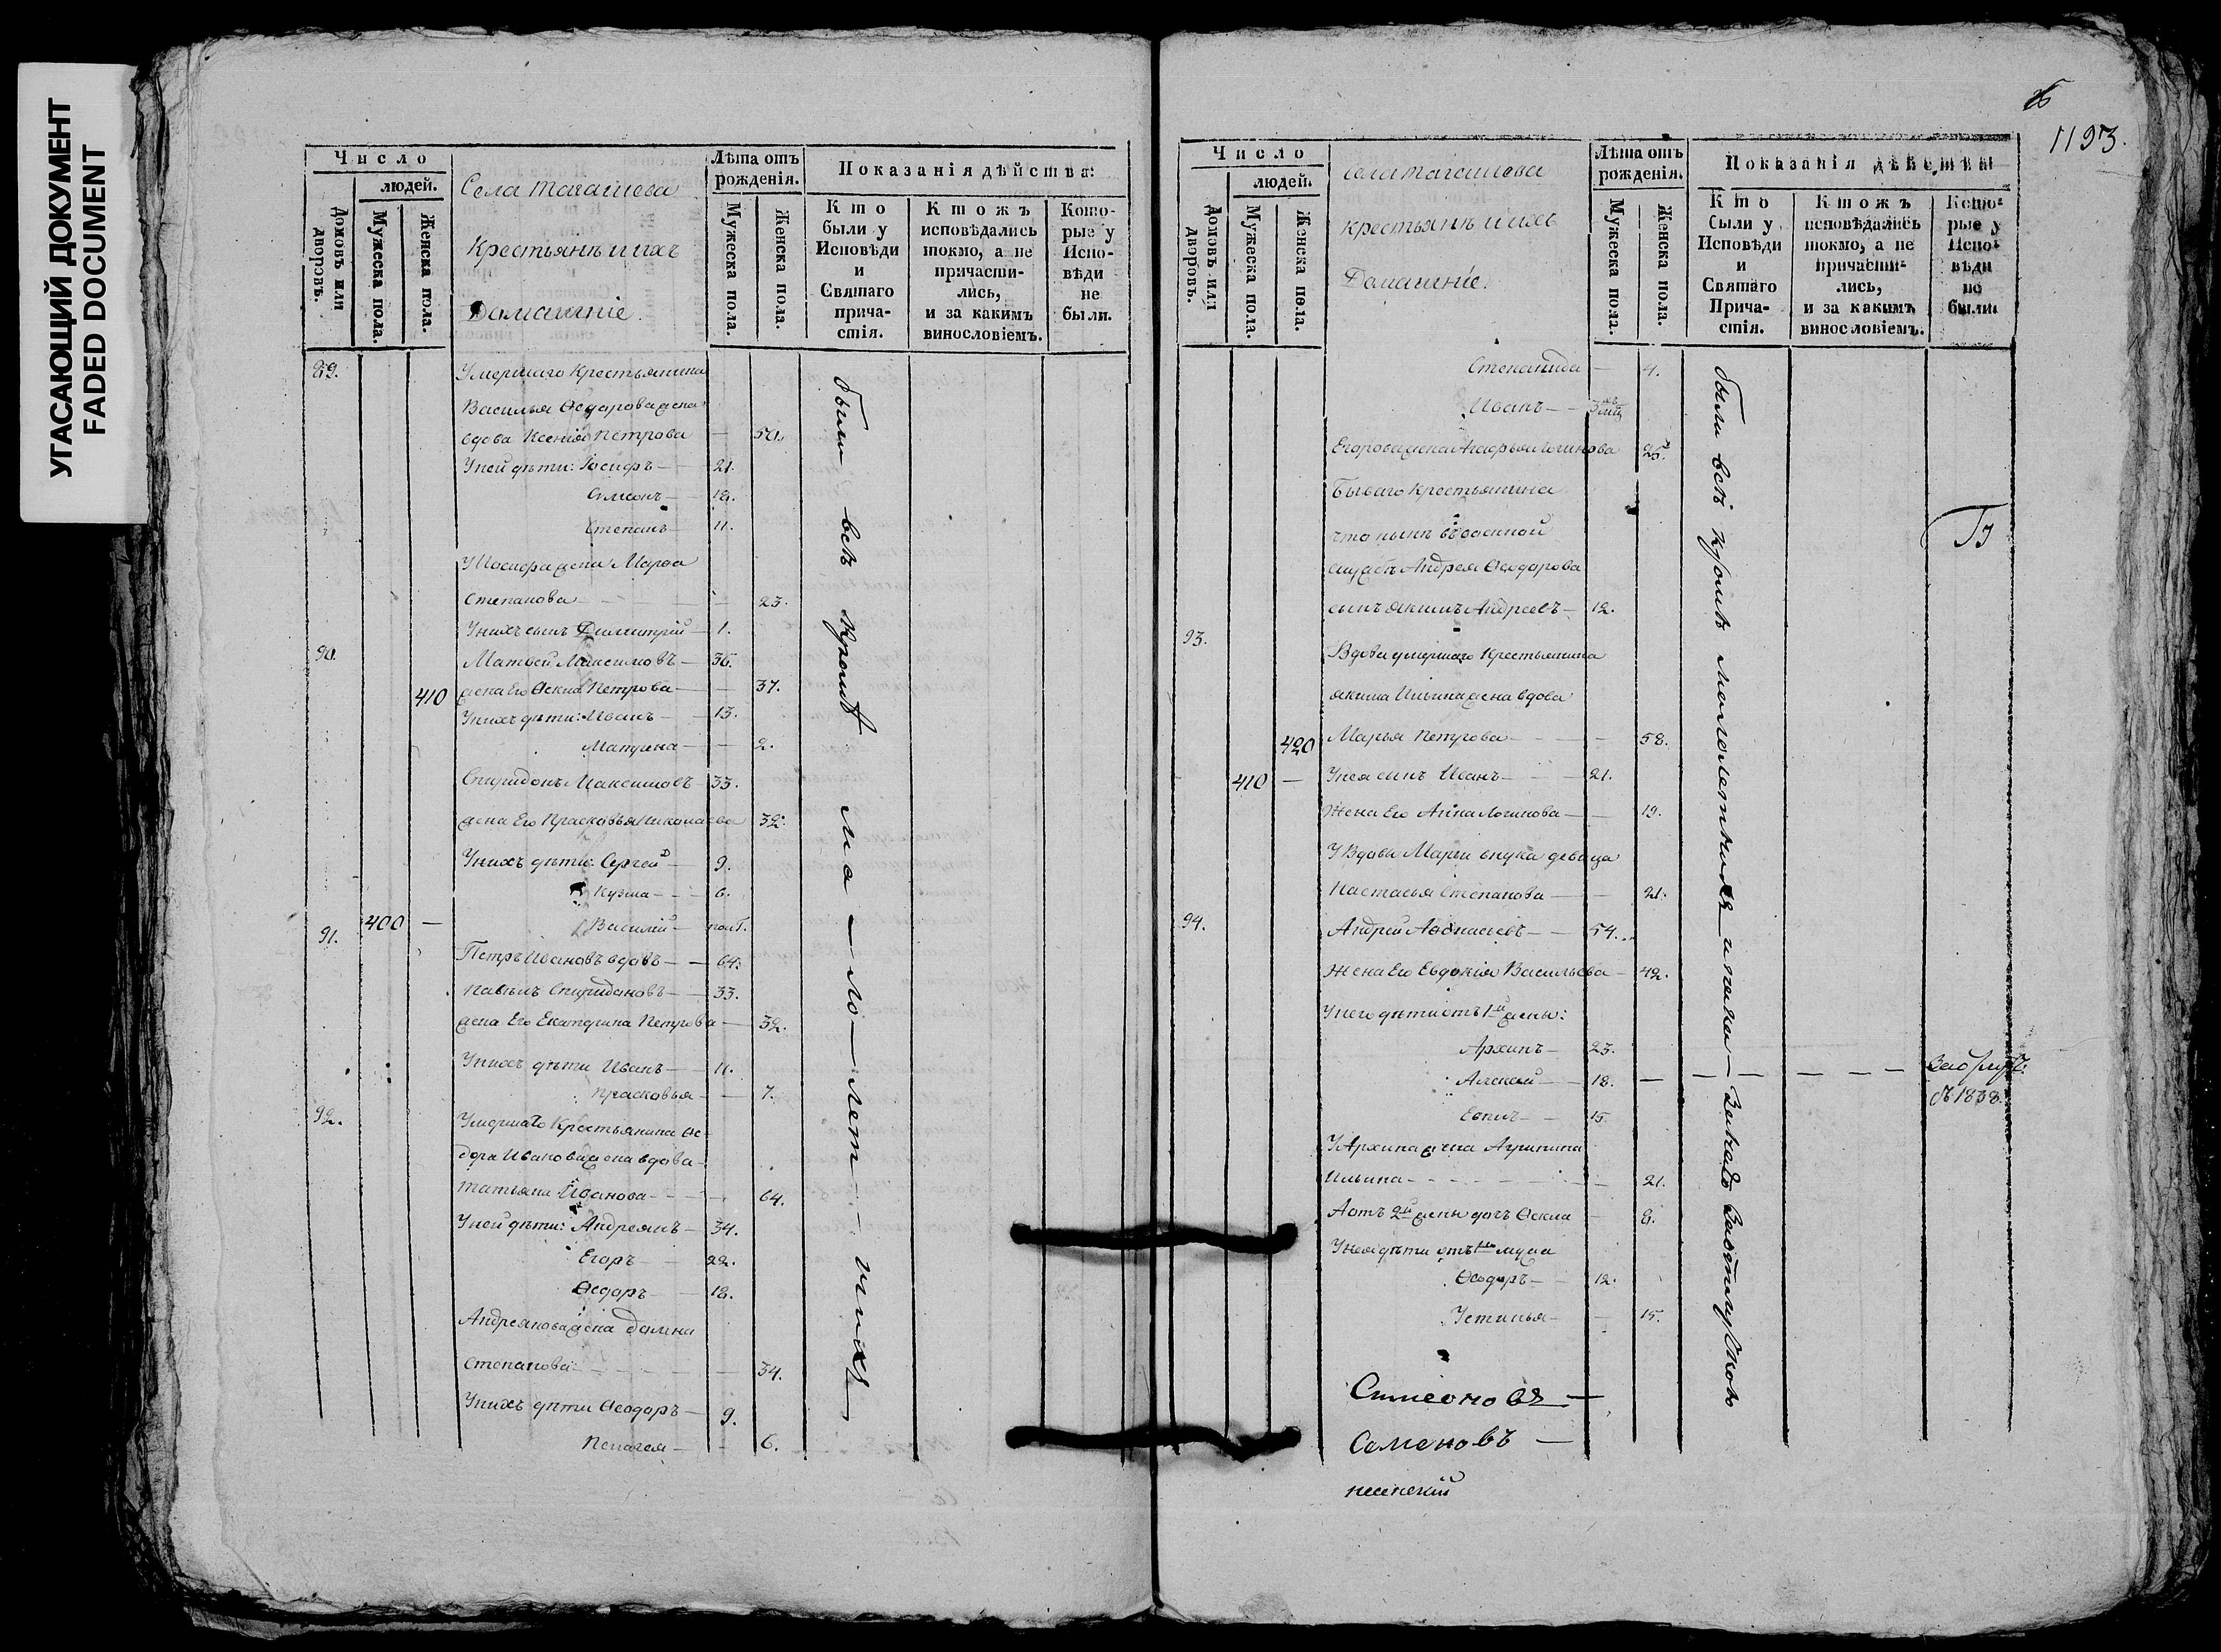 УГАСАЮЩИЙ ДОКУМЕНТ
FADED DOCUMENT
Число
людей.
Домовъ или дворовъ.
Мужеска пола.
Женска пола.
Села Тагашева
Крестьянъ и ихъ
Домашніе.
Лѣта отъ рожденія.
Мужеска пола.
Женска пола.
Показанія дѣйства:
Кто были у Исповѣди и Святаго прича-стія.
Ктожъ исповѣдались токмо, а не причасти-лись, и за какимъ винословіемъ.
Кото-рые у Испо-вѣди не были.
89. Умершаго Крестьянина
Василья Ѳедорова жена
вдова Ксенія Петрова — 50.
У ней дѣти: Іосифъ — 21.
Симеонъ — 18.
Степанъ — 11.
У Іосифа жена Марѳа
Степанова — 23.
У нихъ сынъ Димитрій — 1.
90. Матвей Максимовъ — 36.
410 жена Его Ѳекла Петрова — 37.
У нихъ дѣти: Иванъ — 13.
Матрена — 2.
Спиридонъ Максимовъ 33.
жена Его Прасковья Николаева 32.
У нихъ дѣти: Сергей — 9.
Кузма — 6.
400 — Василій — полт.
91. Петръ Ивановъ вдовъ — 64.
Павелъ Спиридоновъ — 33.
жена Его Екатерина Петрова — 32.
У нихъ дѣти Иванъ — 11.
Прасковья — 7.
92. Умершаго Крестьянина Ѳе-
дора Иванова жена вдова
Татьяна Иванова — 64.
У ней дѣти: Андреянъ — 34.
Егоръ — 22.
Ѳедоръ — 18.
Андреянова жена Домна
Степанова — 34.
У нихъ дѣти Ѳеодоръ — 9.
Пелагея — 6.
были всѣ кромѣ ма — ло — лет — нихъ
1193.
Число
людей.
Домовъ или дворовъ.
Мужеска пола.
Женска пола.
Села Тагашева
Крестьянъ и ихъ
Домашніе.
Лѣта отъ рожденія.
Мужеска пола.
Женска пола.
Показанія дѣйства
Кто были у Исповѣди и Святаго Прича-стія.
Ктожъ исповѣдались токмо, а не причасти-лись, и за какимъ винословіемъ.
Кото-рые у Испо-вѣди не были.
Степанида — 4.
Иванъ —
Егорова жена Агафья Логинова 25.
Бываго Крестьянина
что нынѣ въ военной
службѣ Андрея Ѳеодорова
сынъ Якимъ Андреевъ — 12.
93. Вдова умершаго Крестьянина
Якима Ильина жена вдова
420 Марья Петрова — 58.
410 — У нея сынъ Иванъ — 21.
Жена Его Анна Логинова — 19.
У Вдовы Марьи внука девица
Настасья Степанова — 21.
94. Андрей Аѳонасьевъ — 54.
Жена Его Евдокія Васильева — 42.
У него дѣти отъ 1й жены:
Архипъ — 23.
Алексей — 18.
15.
У Архипа жена Агрипина
Ильина — 21.
А отъ 2й жены дочь Ѳекла — 8.
У нея дѣти отъ 1го мужа
Ѳеодоръ — 12.
Устинья — 15.
Симеоновъ —
Семеновъ —
были всѣ кромѣ малолетнихъ
1838.